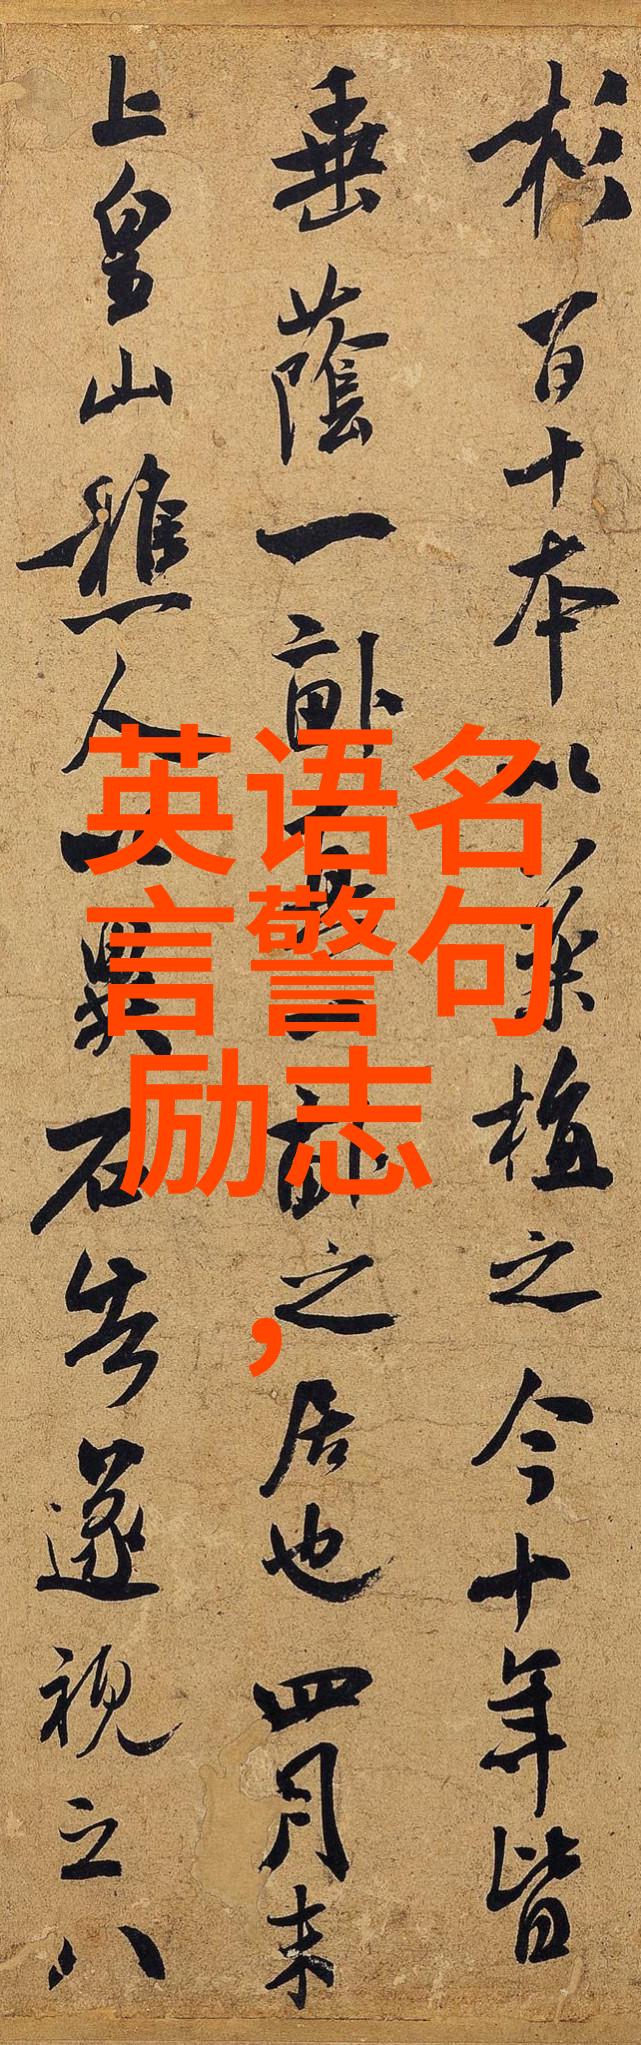 杉百十本以藥植之今十年皆
垂蔭一畝一畝之居也四月末
上皇山樵人以異石告遂視之八
英语名
言警句
励志
,